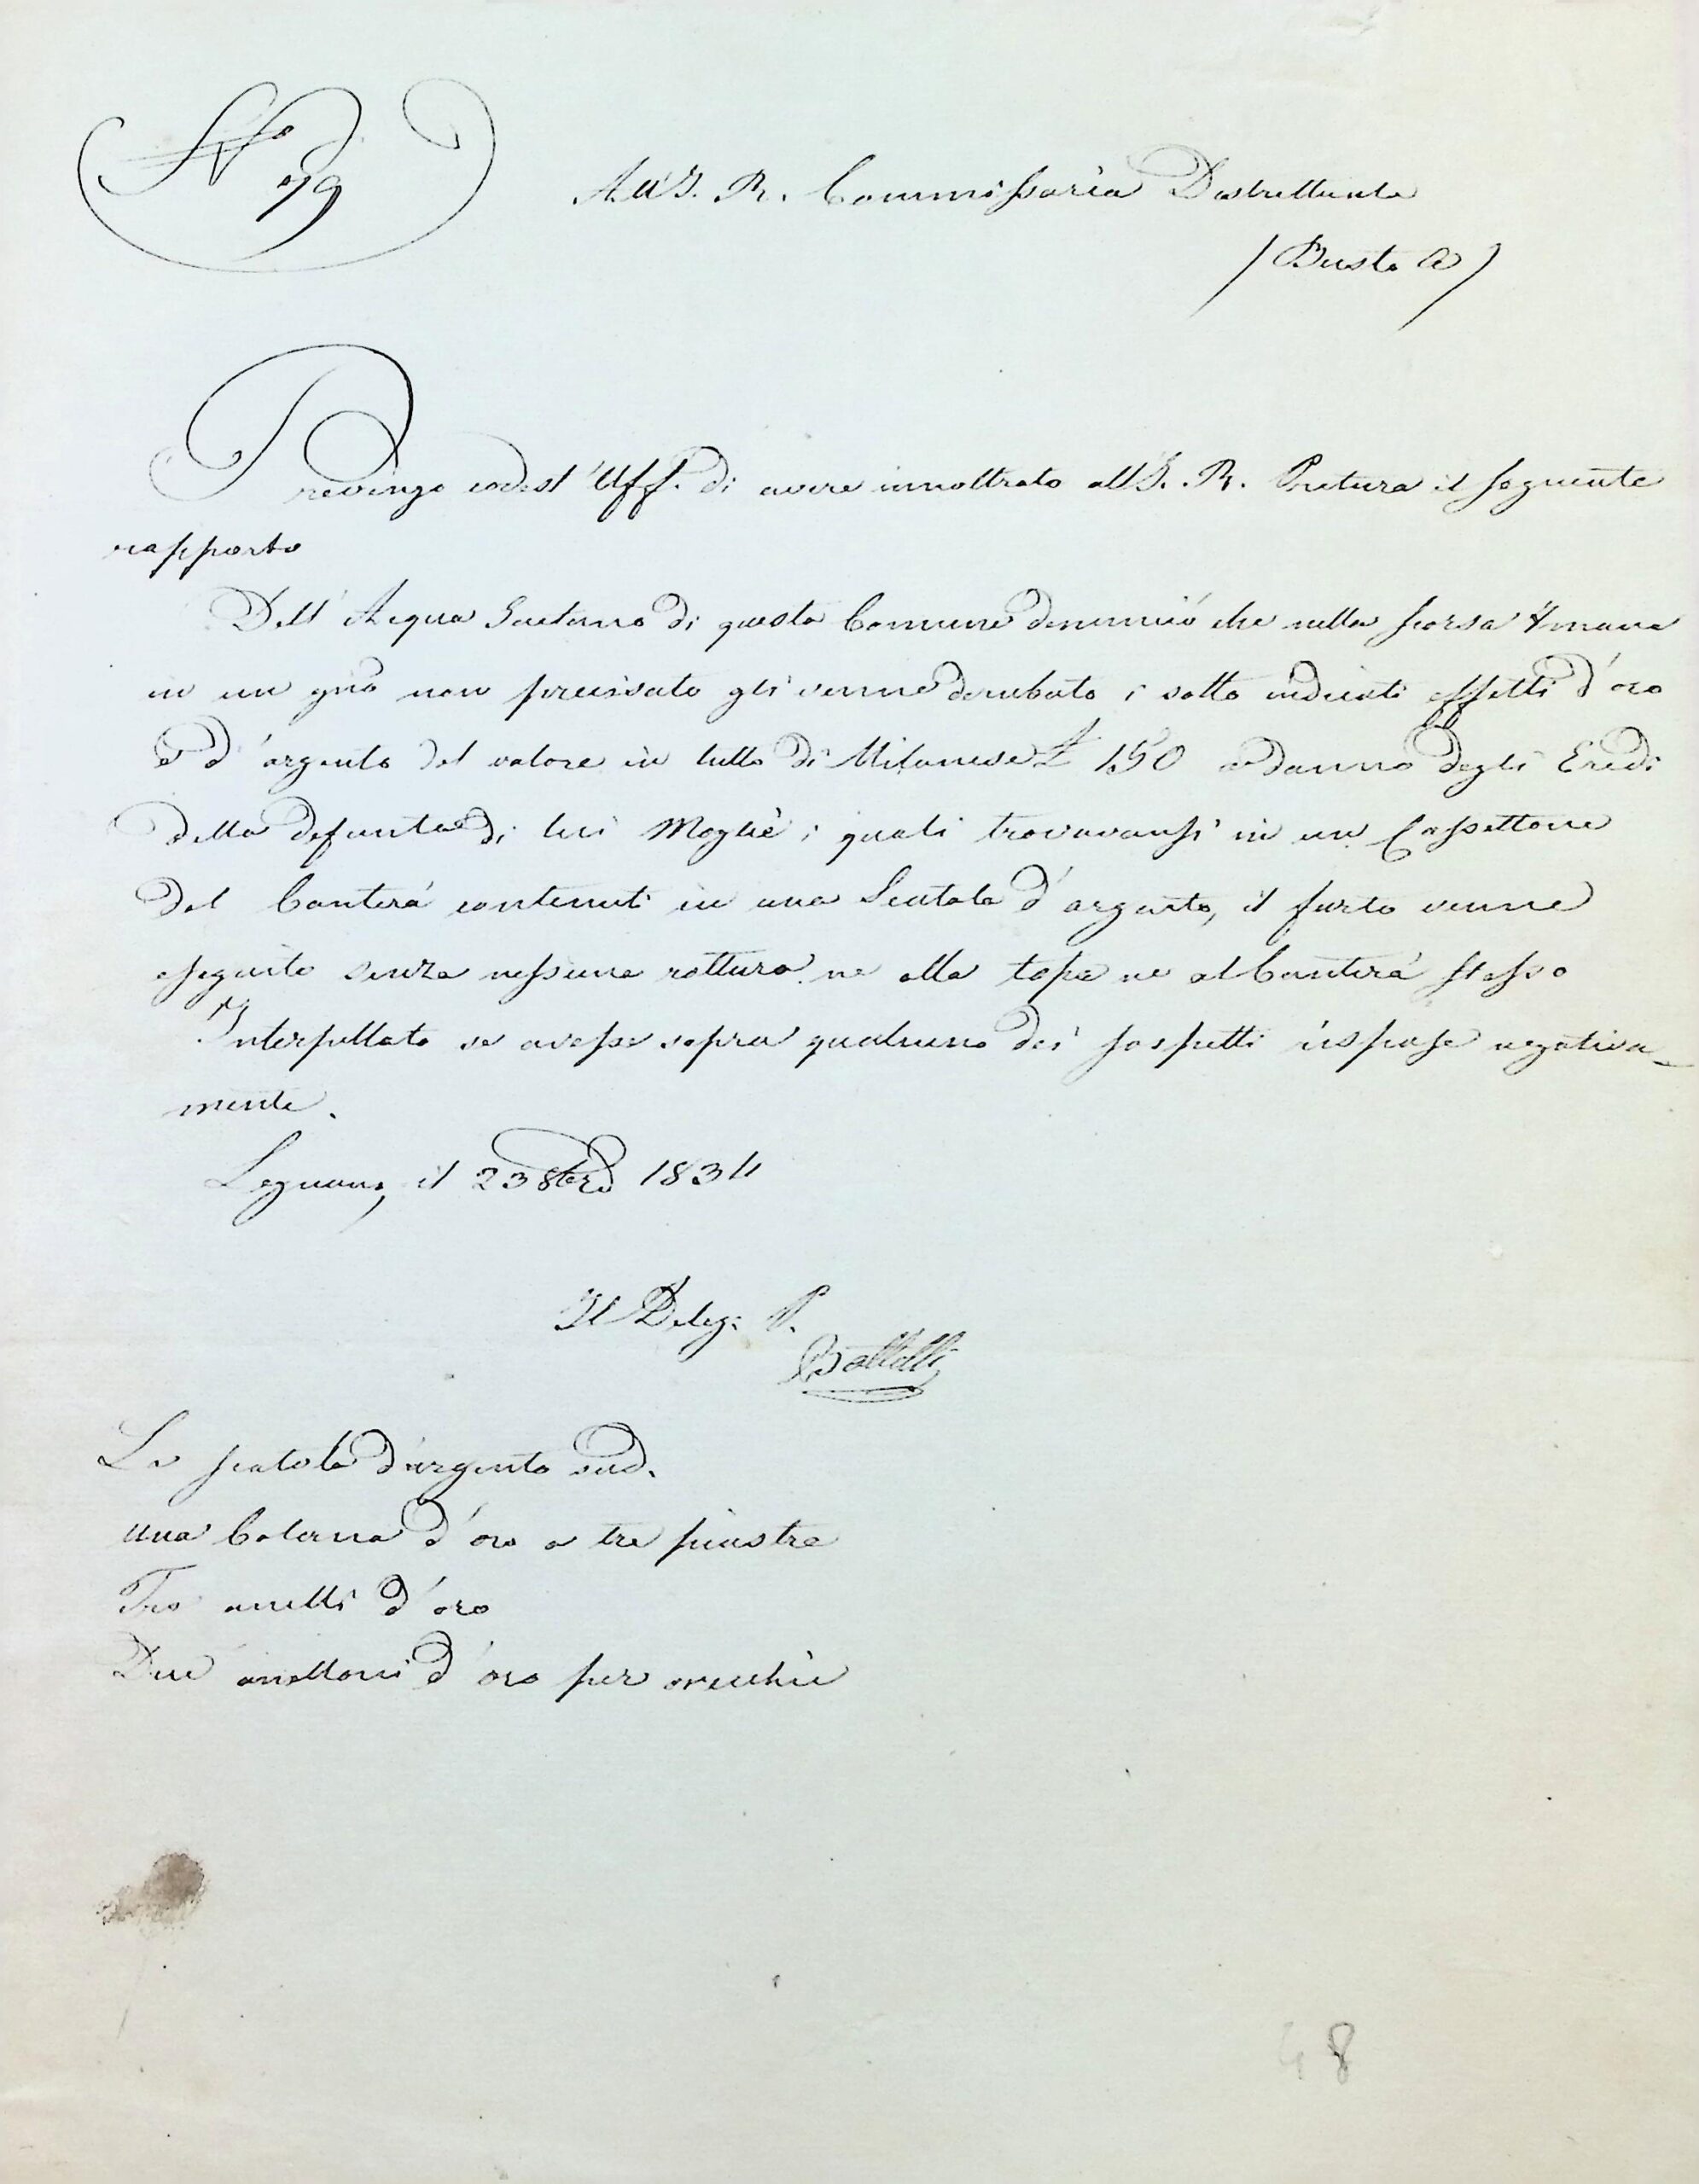 N° 79
All'I. R. Commissaria Distrettuale
/ Busto A /
Prevengo codest'Uff. di avere innoltrato all'I. R. Pretura il seguente
rapporto
Dell'Acqua Gaetano di questo Comune denunciò che nella scorsa 7mana
in un gno non precisato gli venne derubato i sotto indicati effetti d'oro
e d'argento del valore in tutto di Milanese £ 150 a danno degli Eredi
della defunta di lui Moglie i quali trovavansi in un Cassettone
del Canterà contenuti in una Scatola d'argento, il furto venne
eseguito senza nessuna rottura ne alla topa ne al Canterà stesso
Interpellato se avesse sopra qualcuno dei sospetti rispose negativa-
mente.
Legnano, il 23 8bre 1834
Il Deleg: P.
La scatola d'argento sud.
una Colanna d'oro a tre piastre
Tre anelli d'oro
Due anelloni d'oro per orecchie
48